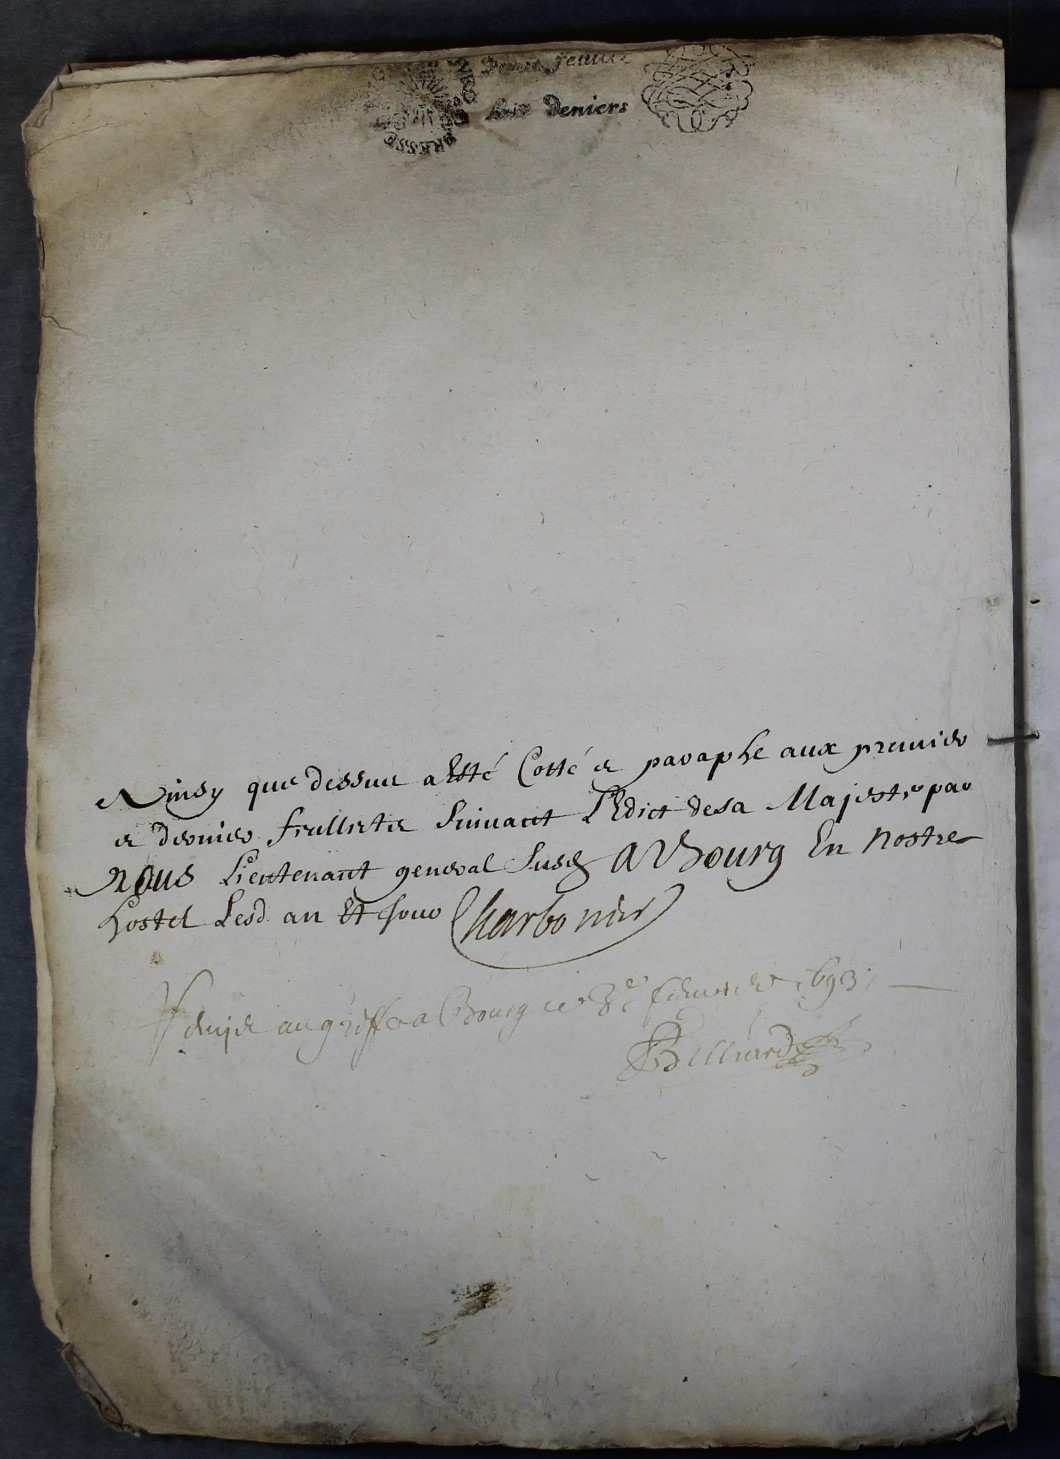 feuille
huit deniers
BRESSE
Ainsy que dessus a Esté Cotté et paraphe aux premier
et dernier feuillets suivant l'Edict de sa Majesté par
nous Lieutenant general susd A Bourg En nostre
hostel Lesd an Et jour Charbonier
au greffe a Bourg ce 3e 1693
Billiard